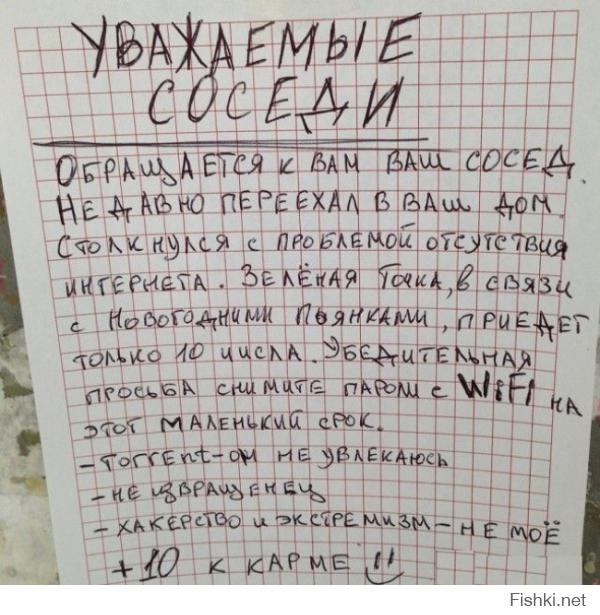 УВАЖАЕМЫЕ
СОСЕДИ
ОБРАЩАЕТСЯ К ВАМ ВАШ СОСЕД.
НЕ ДАВНО ПЕРЕЕХАЛ В ВАШ ДОМ.
СТОЛКНУЛСЯ С ПРОБЛЕМОЙ ОТСУТСТВИЯ
ИНТЕРНЕТА. ЗЕЛЁНАЯ ТОЧКА, В СВЯЗИ
С НОВОГОДНИМИ ПЬЯНКАМИ, ПРИЕДЕТ
ТОЛЬКО 10 ЧИСЛА. УБЕДИТЕЛЬНАЯ
ПРОСЬБА СНИМИТЕ ПАРОЛИ С WiFi НА
ЭТОТ МАЛЕНЬКИЙ СРОК.
- TORRENT-ОМ НЕ УВЛЕКАЮСЬ
- НЕ ИЗВРАЩЕНЕЦ
- ХАКЕРСТВО И ЭКСТРЕМИЗМ - НЕ МОЁ
+10 К КАРМЕ
Fishki.net